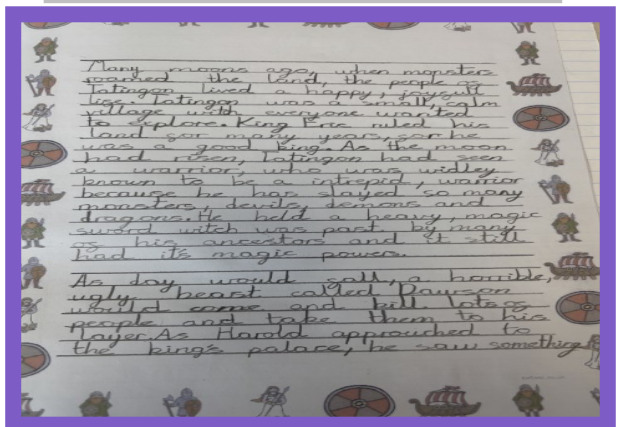 Many moons ago, when monsters
roamed the land, the people of
Tatingon lived a happy, joyfull
life. Tatingon was a small, calm
village with everyone wanted
to explore. King Eric ruled his
land for many years, for he
was a good king. As the moon
had risen, Tatingon had seen
a warrior, who was widley
known to be a intrepid, warrior
because he has slayed so many
monsters, devils, demons and
dragons. He held a heavy, magic
sword witch was past by many
of his ancestors and it still
had it's magic powers.
As day would fall, a horrible,
ugly beast called Dawson
would come and kill lots of
people and take them to his
layer. As Harold approuched to
the king's palace, he saw something